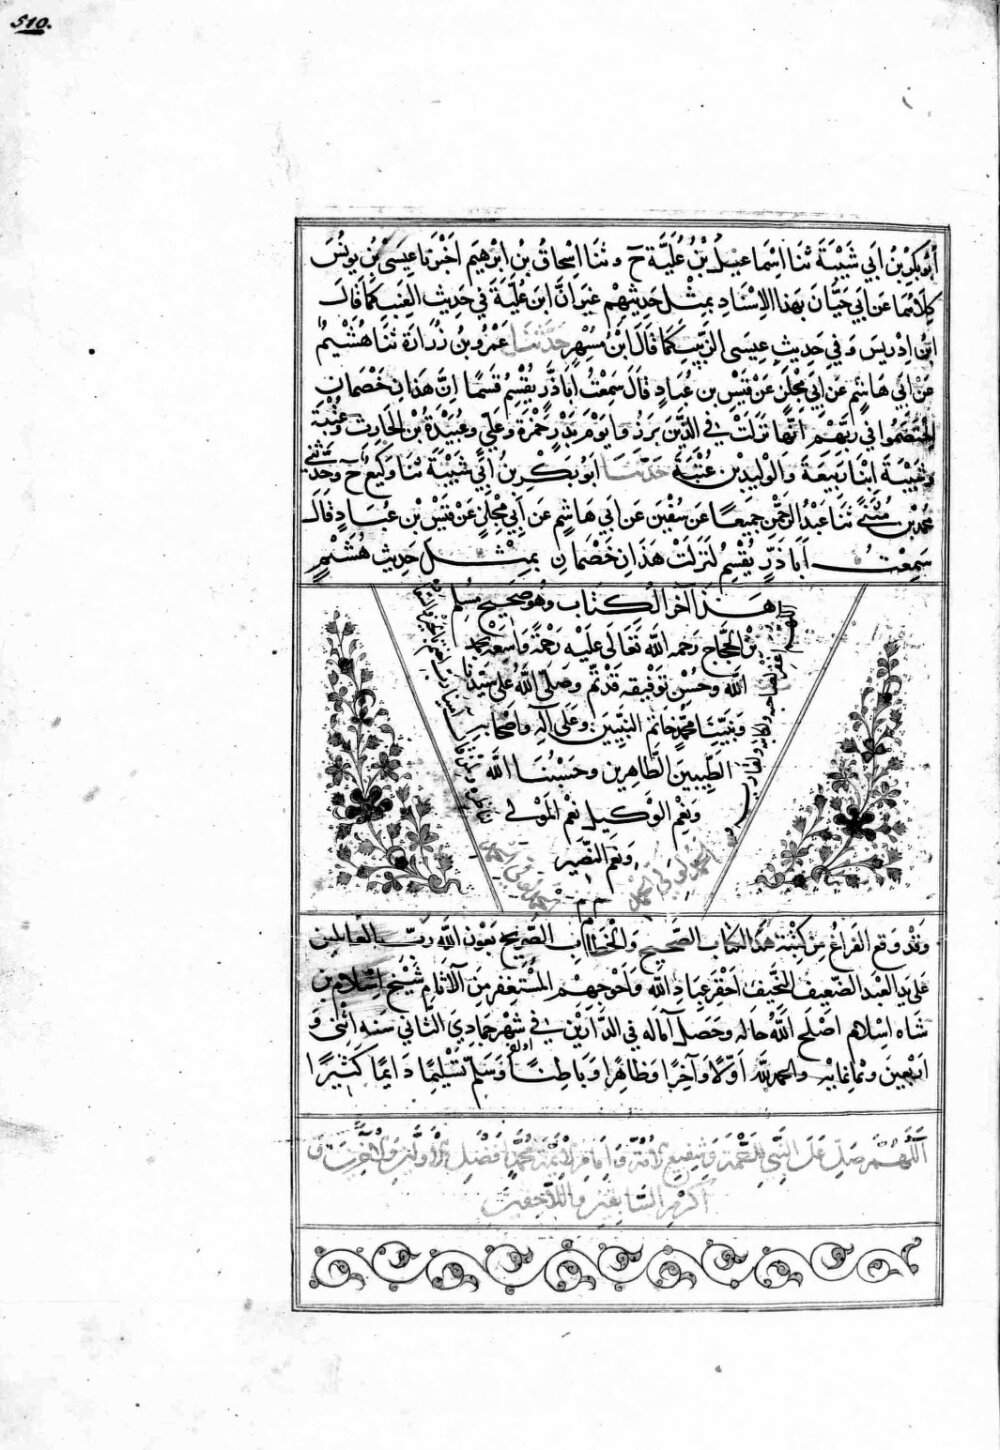 510.
أبُو بَكْرِ بْنُ أبي شَيْبَةَ ثنا اسْمَاعيلُ بْنُ عُلَيَّةَ ح وثنا اِسْحاقُ بن ابْرهيم اَخْبَرنا عيسَى بْن يونُسَ
كِلَاهُمَا عن ابي حَيَّانَ بهذا الاِسْنَادِ بمِثْلِ حَدِيثِهِمْ غيرَ انَّ ابنَ عُلَيَّةَ في حَدِيثِ العِنَبِ كَمَا قَالَ
ابنُ اِدْرِيسَ وَفي حَدِيثِ عِيسَى الزَّبِيبِ كَمَا قَالَ ابْنُ مُسْهِرٍ حَدَّثَنَا عَمْرُو بْن زُرَارَةَ ثنَا هُشَيْمٌ
عَن ابي هَاشِمٍ عن ابي مِجْلَزٍ عَنْ قَيْسِ بن عُبَادٍ قالَ سَمِعْتُ اَبَا ذَرٍّ يُقْسِمُ قَسَمًا اِنَّ هَذَانِ خَصْمَانِ
اخْتَصَمُوا في رَبِّهِمْ اَنَّهَا نَزَلَتْ في الَّذِينَ بَرَزُوا يَوْمَ بَدْرٍ حَمْزَةَ وَعَليٍّ وَعُبَيْدَةَ بْن الحَارِث وَعُتْبَةَ
وَشَيْبَةَ ابْنَا رَبِيعَةَ وَالْوَلِيدِ بْن عُتْبَةَ حَدَّثَنَا ابو بَكْر بنُ اَبي شَيْبَةَ ثنَا وَكِيعٌ ح وَحَدَّثني
مُحمدُ بن مُثَنَّى ثنَا عَبْدُ الرَّحْمن جَمِيعًا عَنْ سُفْيَن عَن ابي هَاشِمٍ عَن اَبي مِجْلَزٍ عَنْ قَيْسِ بن عُبَادٍ قَالَ
سَمِعْتُ اَبَا ذَرٍّ يُقْسِمُ لَنَزَلَتْ هَذَانِ خَصْمَانِ بِمِثْلِ حَدِيثِ هُشَيْمٍ
هَذا آخر الكتاب وهو صحيح مسلم
بْن الحجّاج رحمه الله تعَالَى عَلَيْه رَحْمَةً وَاسِعَة
الله وَحُسْنِ تَوْفِيقِه قَدْ تمّ وَصَلَّى اللهُ عَلَى سَيِّدنا
وَنَبِيِّنَا مُحَمَّدٍ خَاتَمِ النَّبِيِّينَ وَعَلَى آلِه وَاَصْحَابِه
الطَّيِّبِينَ الطَّاهِرِين وَحَسْبُنَا اللهُ
وَنِعْمَ الوَكِيل نِعْمَ المَوْلَى
وَنِعْمَ النَّصِير
وَقَدْ وَقَعَ الفَرَاغُ مِن كِتْبَة هَذَا الكِتَاب الصَّحِيح الصَّرِيح بِعَوْنِ الله رَبِّ العَالَمِين
عَلى يد العَبْد الضَّعِيف النَّحِيف اَحْقَر عِبَادِ الله وَاَحْوجهم المُسْتَغْفِر مِنَ الآثَامِ شَيْخ اِسْلَام بن
شَاه اِسْلَام اَصْلَحَ اللهُ حَاله وَحَصَلَ آمَالَه فِي الدَّارَيْن فِي شَهْر جُمَادِيَ الثَّانِي سَنه اثْنَى وَ
ارْبعِينَ وَثمانمايه والحمد لله اَوّلًا وَآخِرًا وَظَاهِرًا وَبَاطِنًا وَسَلِّمْ تَسْلِيمًا دَايمًا كَثِيرًا
اَللَّهُمَّ صَلِّ عَلَى النَّبِيِّ الرَّحْمَة وَشَفِيعِ الاُمَّة وَاِمَامِ الاَئِمَّة مُحَمَّدٍ اَفْضَلِ الاَوَّلِينَ وَالآخِرِينَ وَ
اَكْرَمِ السَّابِقِينَ وَاللَّاحِقِينَ